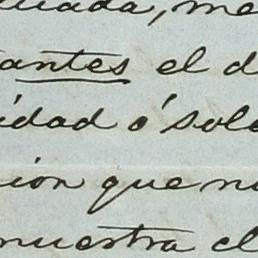 uada, me
antes el d
idad ó sole
ion que n
muestra el